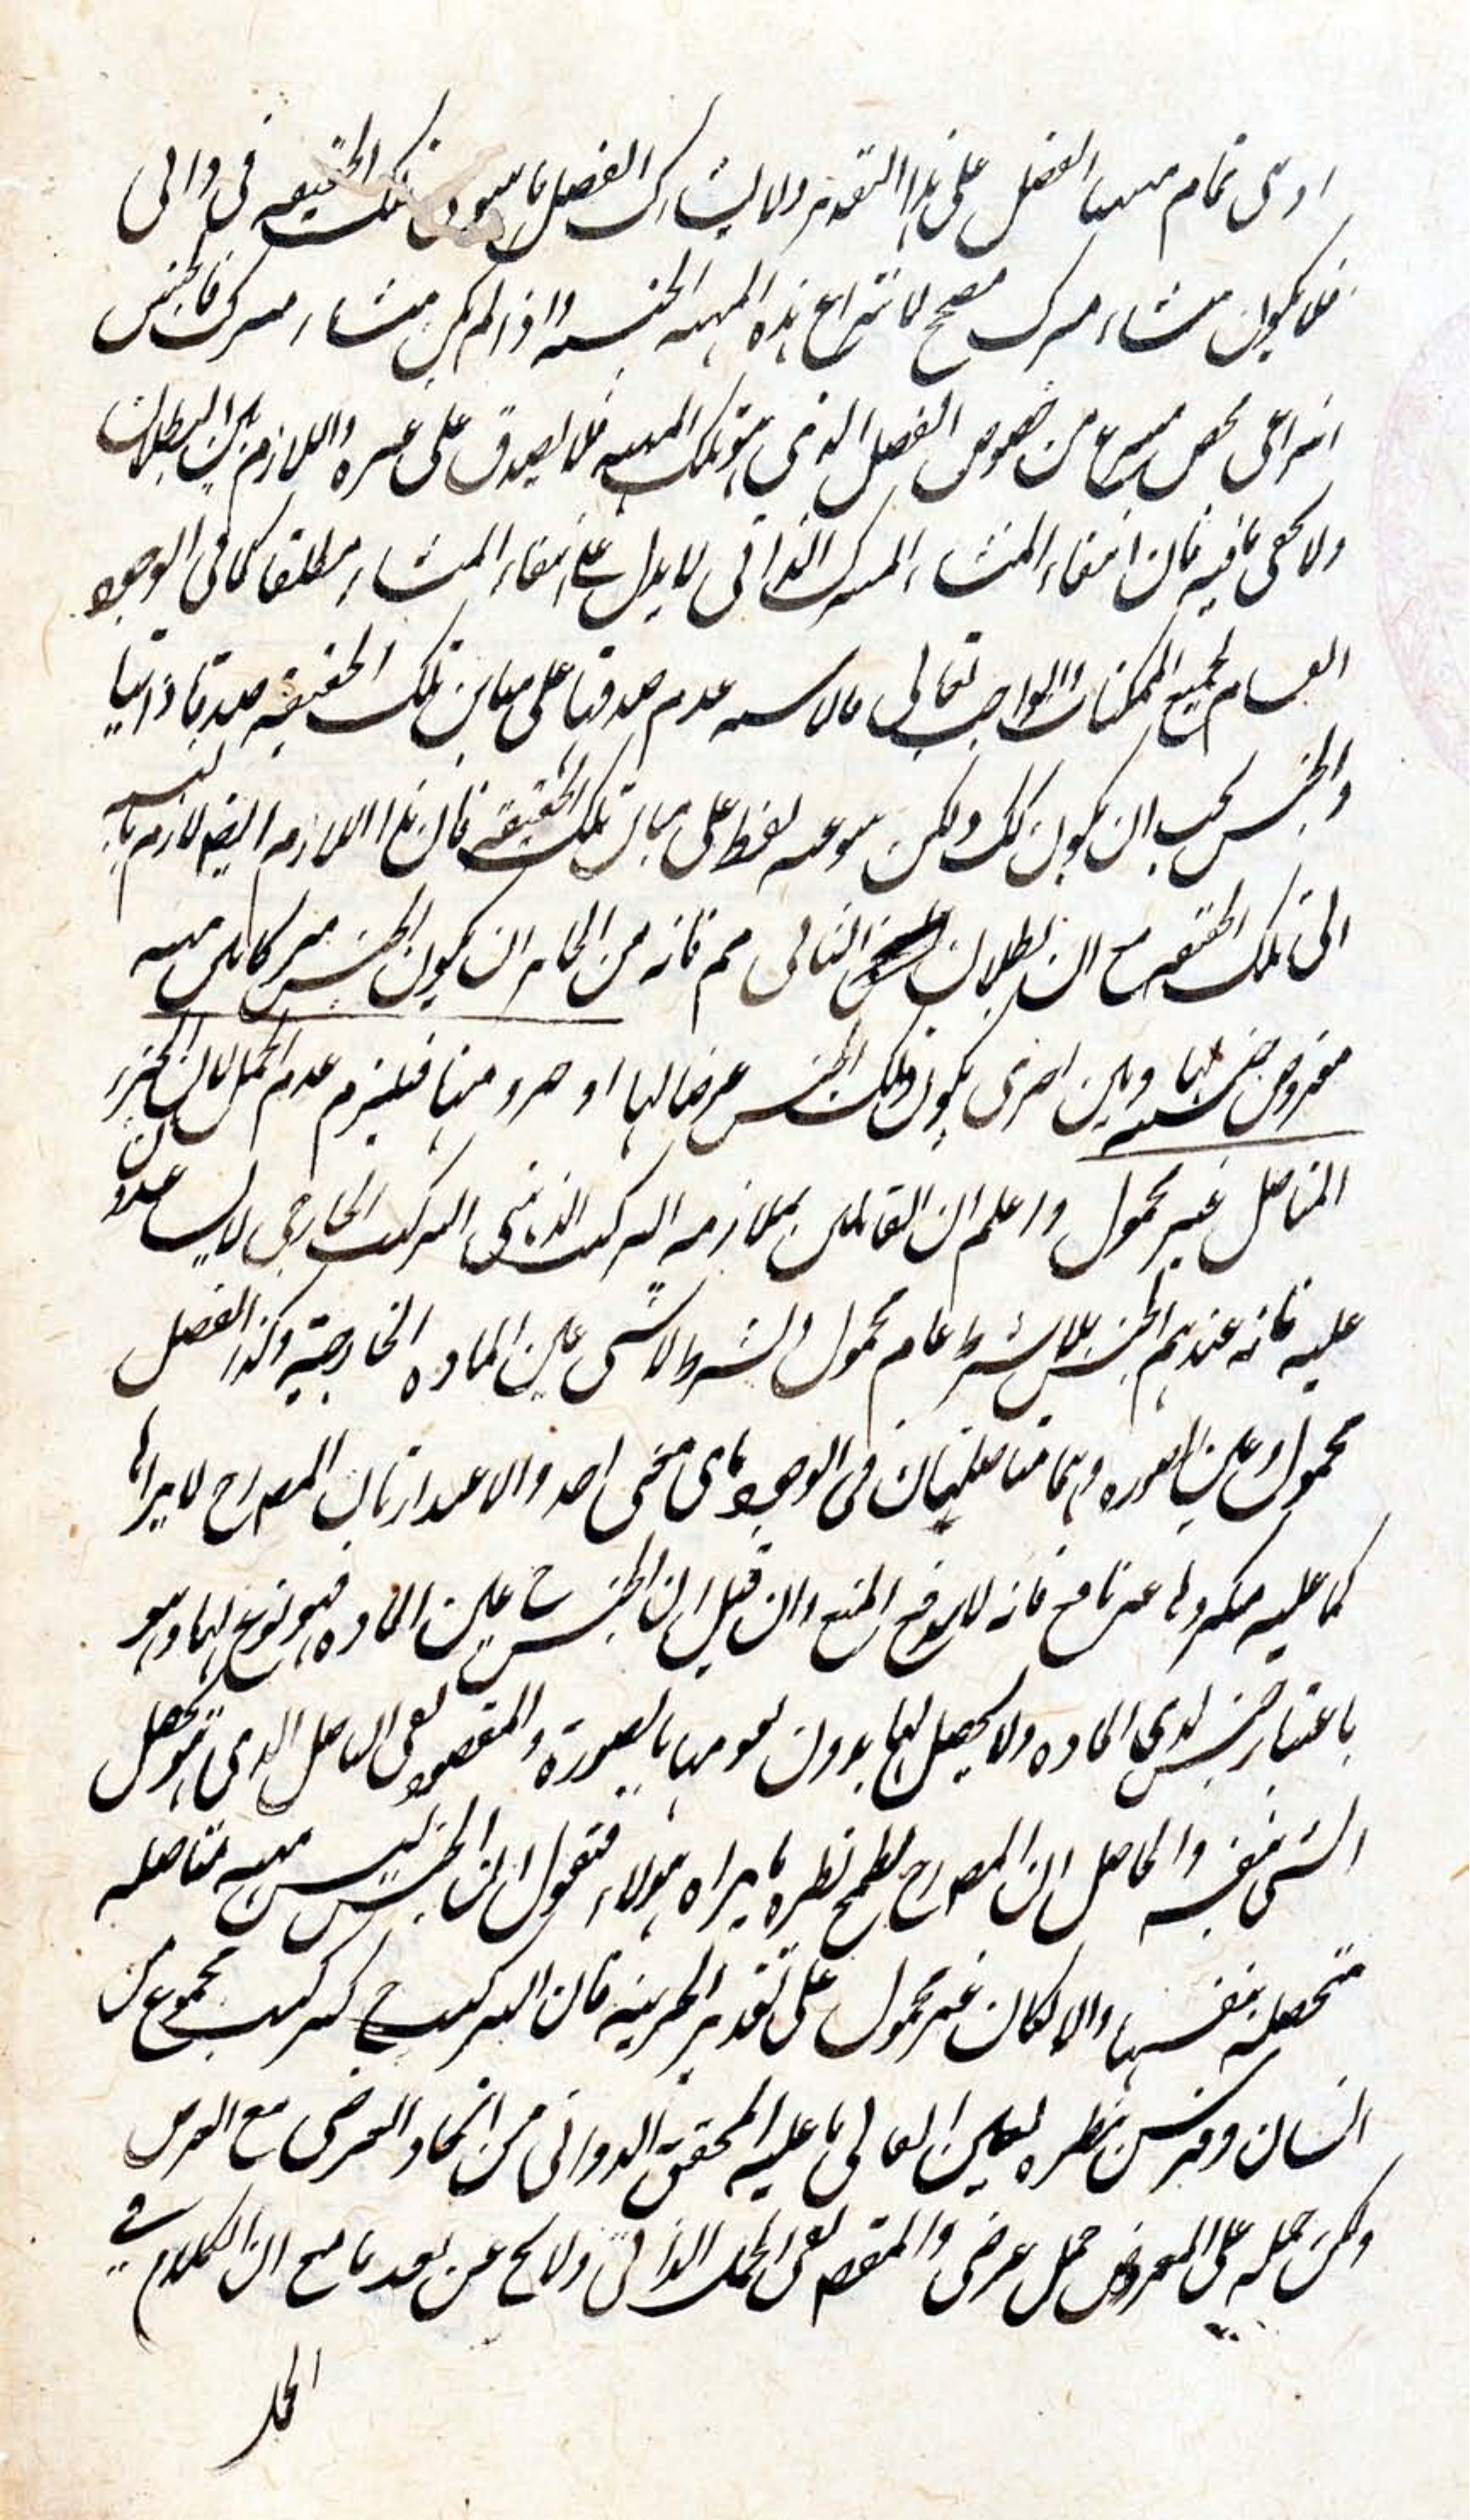 او هى تمام مهية الفصل على هذا التقدير ولا يشارك الفصل ما سوى تلك الحقيقة فى ذاتى
فلا يكون منشاء مشترك مصحح لانتزاع هذه المهية الجنسية واذا لم يكن منشاء مشترك فالجنس
انتزاعى محض منتزع من خصوص الفصل الذى هو تلك المهية فلا يصدق على غيره واللازم بين البطلان
ولا يخفى ما فيه فان انتفاء المنشاء المشترك الذاتى لا يدل على انتفاء المنشاء مطلقا كما فى الوجود
العام لجميع الممكنات والواجب تعالى عدم صدقها على مباين تلك الحقيقة صدقا ذاتيا
والجنس يجب ان يكون كك ولكن على مباين تلك الحقيقة فان هذا اللازم ايضا لازم بالنسبة
الى تلك الحقيقة مع ان بطلان التالى مم فانه من الجائز ان يكون الجنس مشتركا بين مهية
مفروض جنسيته لها وبين اخرى يكون ذلك الجنس عرضا لها او جزء منها فيلزم عدم الحمل لان الجزء
المتاصل غير محمول واعلم ان القائلين بملازمة التركيب الذهنى التركيب الخارجى لا يساعدون
عليه فانه عندهم الجنس بلا شرط عام محمول وبشرط لا شى عين المادة الخارجية وكذا الفصل
محمول وعين الصورة وهما متاصلتان فى الوجود باى منحى اخذ والاعتذار بان المصرح لا يراها
كما عليه غير نافع فانه لا يدفع المنع وان قيل ان الجنس ح عين المادة فهو نوع لها وهو
باعتبار جنس لذى المادة ولا تحصل لها بدون تقومها بالصورة والمقصود نفى التاصل الذى هو تحصل
الشى بنفسه والحاصل ان المصرح مطمح نظره ما يراه هؤلاء فتقول ان الجنس ليس مهية متاصلة
متحصلة بنفسها والا لكان غير محمول على تقدير الجزئية فان التركيب ح كتركيب مجموع من
انسان وفرس نظره العالى ما عليه المحقق الدوانى من اتحاد العرضى مع العرض
ولكن حمله على المعروض حمل عرضى والمقصود نفى الحمل الذاتى ولا يخ عن بعد ما مع ان الكلام فى
الحمل